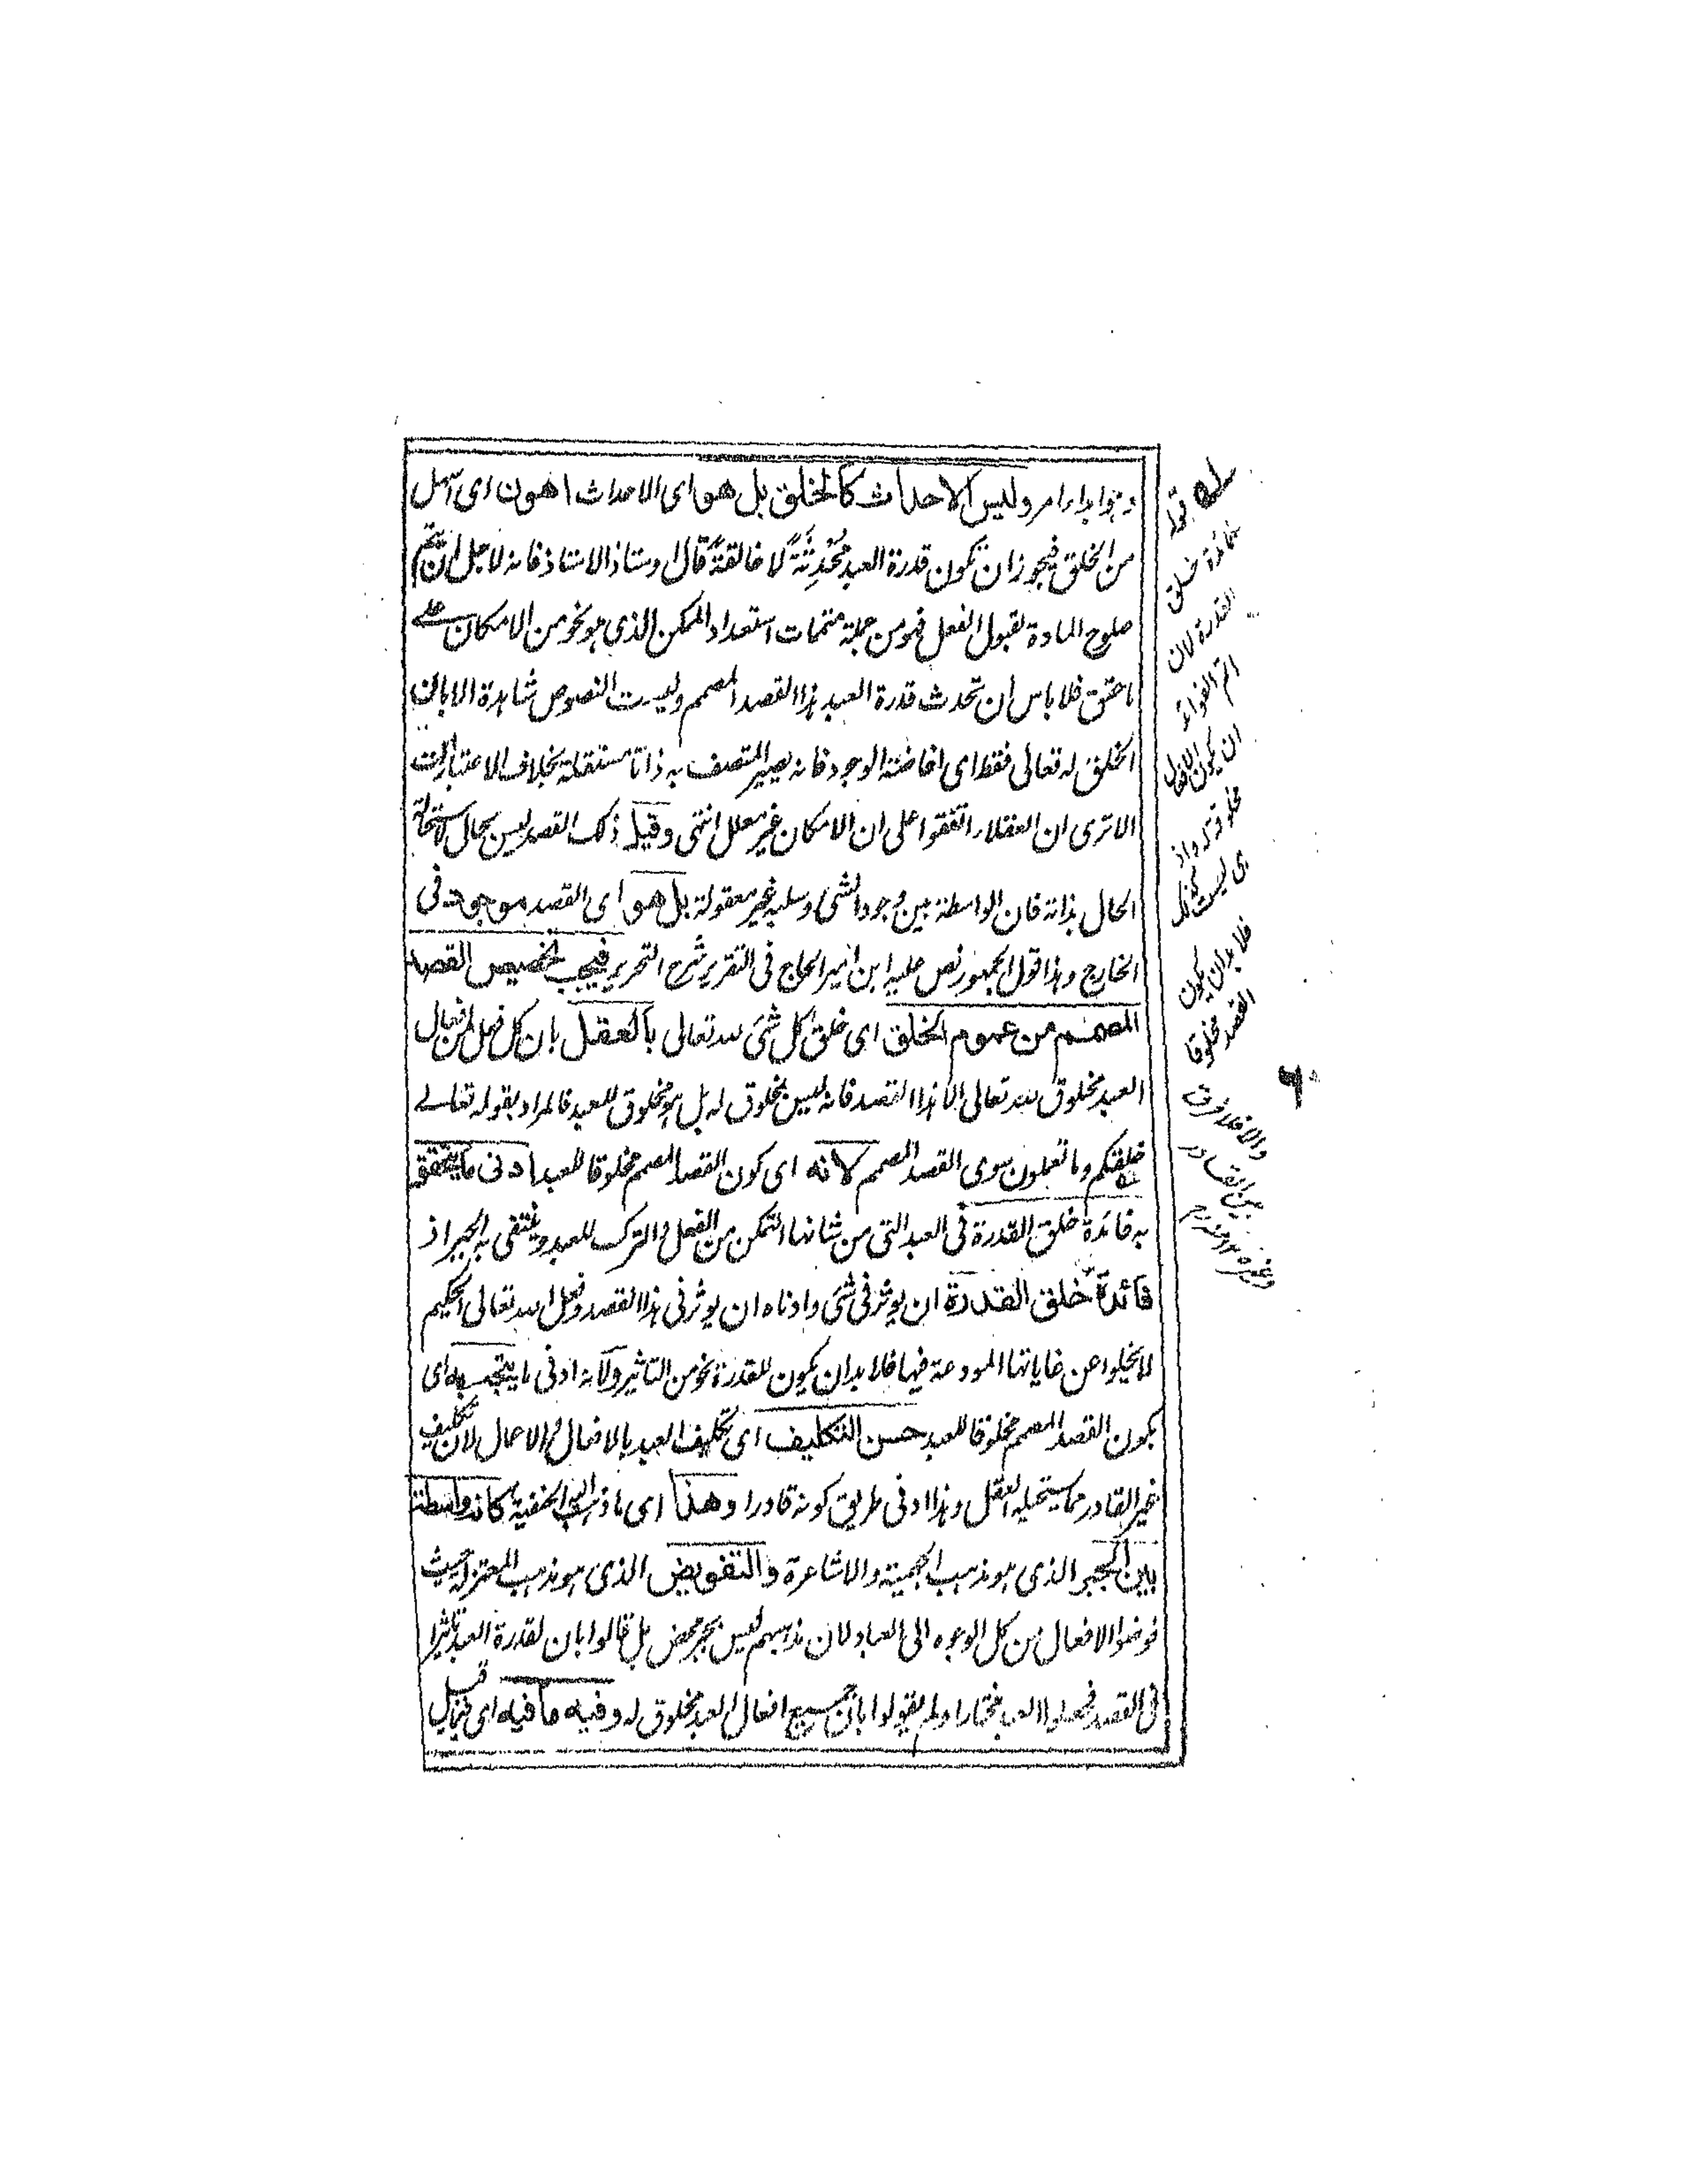 وليس الاحداث كالخلق بل هو اى الاحداث اهون اى اسهل
من الخلق فيجوز ان تكون قدرة العبد مُحْدِثَةً لا خالقةً قال الاستاذ فانه لاجل ان يتم
صلوح المادة لقبول الفعل فهو من جملة متممات استعداد الممكن الذى هو نحو من الامكان على
ما حقق فلا باس ان تحدث قدرة العبد هذا القصد المصمم وليست النصوص شاهدة الا بان
الخلق له تعالى فقط اى افاضة الوجود فانه يصير المتصف به ذاتا مستقلة بخلاف الاعتباريات
الا ترى ان العقلاء اتفقوا على ان الامكان غير معلل انتهى وقيل ذلك القصد ليس بحال لاستحالة
الحال بذاته فان الواسطة بين وجود الشئ وسلبه غير معقولة بل هو اى القصد موجود فى
الخارج وهذا قول الجمهور نص عليه ابن امير الحاج فى التقرير شرح التحرير فيجب تخصيص القصد
المصمم من عموم الخلق اى خلق كل شئ لله تعالى بالعقل بان كل فعل من افعال
العبد مخلوق لله تعالى الا هذا القصد فانه ليس بمخلوق له بل هو مخلوق للعبد فالمراد بقوله تعالى
خلقكم وما تعملون سوى القصد المصمم لانه اى كون القصد المصمم مخلوقا للعبد ادنى ما يتحقق
به فائدة خلق القدرة فى العبد التى من شانها التمكن من الفعل والترك للعبد وينتفى به الجبر اذ
فائدة خلق القدرة ان يوثر فى شئ وادناه ان يوثر فى هذا القصد وفعل الله تعالى الحكيم
لا يخلوا عن غاياتها المودعة فيها فلا بد ان يكون للقدرة نحو من التاثير ولانه ادنى ما يتجه به اى
بكون القصد المصمم مخلوقا للعبد حسن التكليف اى تكليف العبد بالافعال والاعمال لان تكليف
غير القادر مما يستحيله العقل وهذا ادنى طريق كونه قادرا وهذا اى ما ذهب اليه الحنفية كانه واسطة
بين الجبر الذى هو مذهب الجهمية والاشاعرة والتفويض الذى هو مذهب المعتزلة حيث
فوضوا الافعال من كل الوجوه الى العباد لان مذهبهم ليس بجبر محض بل قالوا بان لقدرة العبد تاثيرا
فى القصد فجعلوا العبد مختارا ولم يقولوا بان جميع افعال العبد مخلوق له وفيه ما فيه اى
قوله
فائدة خلق
القدرة لان
اتم الفوائد
ان يكون الافعال
مخلوقة له واذ
هى ليست كذلك
فلا بد ان يكون
القصد مخلوقا
والا فلا فرق
بين القادر
وغيره
٦٠